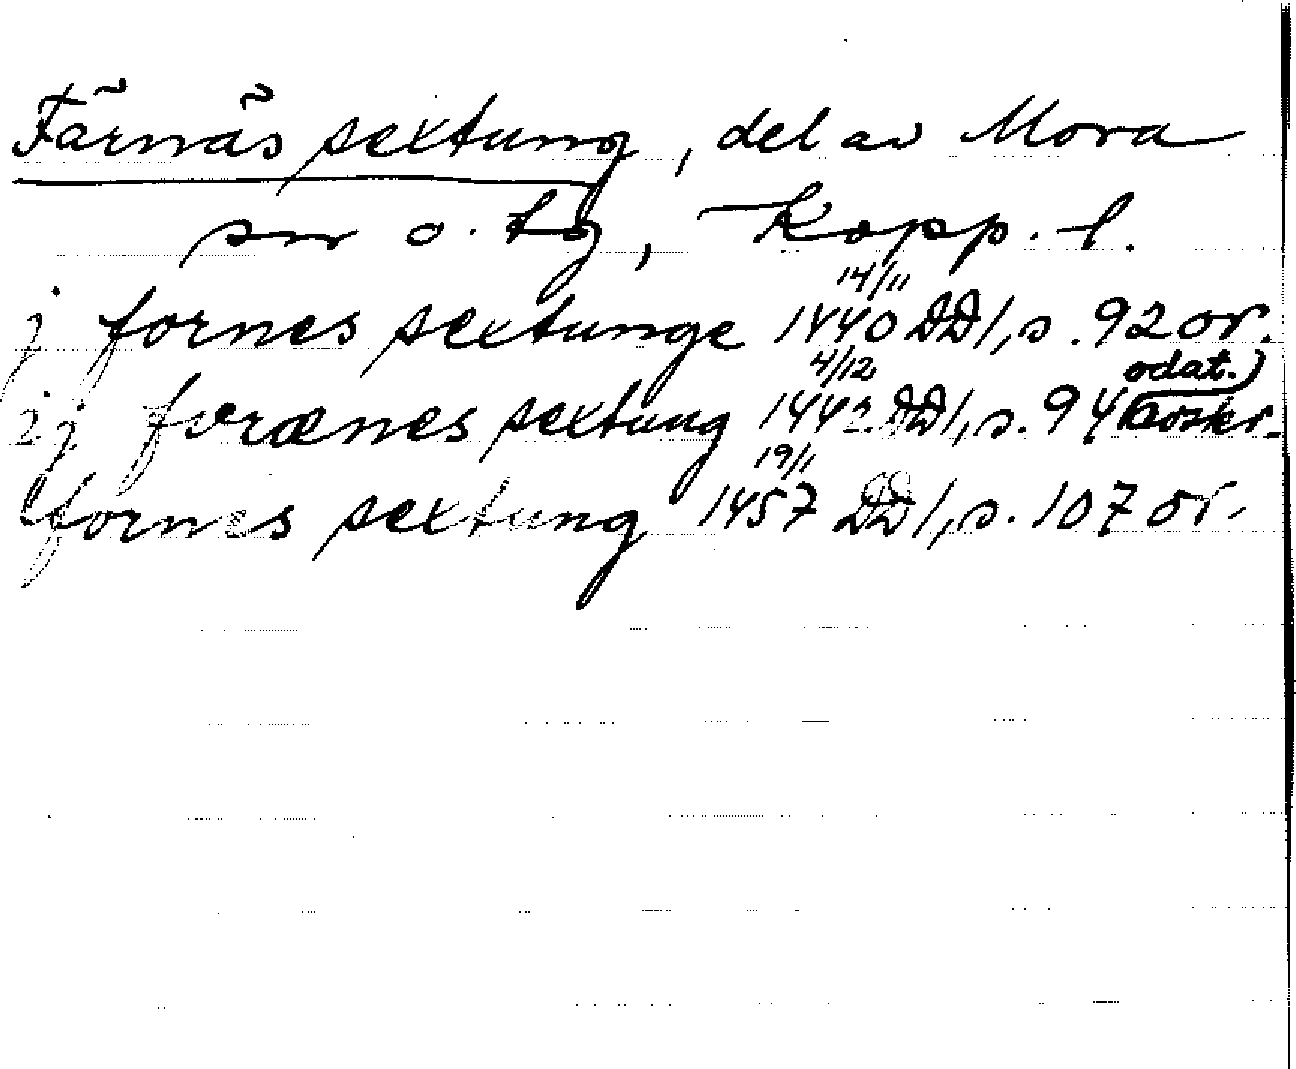 Färnäs sextung, del av Mora
sn o. tg, Kopp. l.
j fornes sextunge 14/11 1440 DD1, s. 92 or.
ij forænes sextung 4/12 1442 DD1, s. 94 odat.) avskr.
fornes sextung 19/1 1457 DD1, s. 107 or.